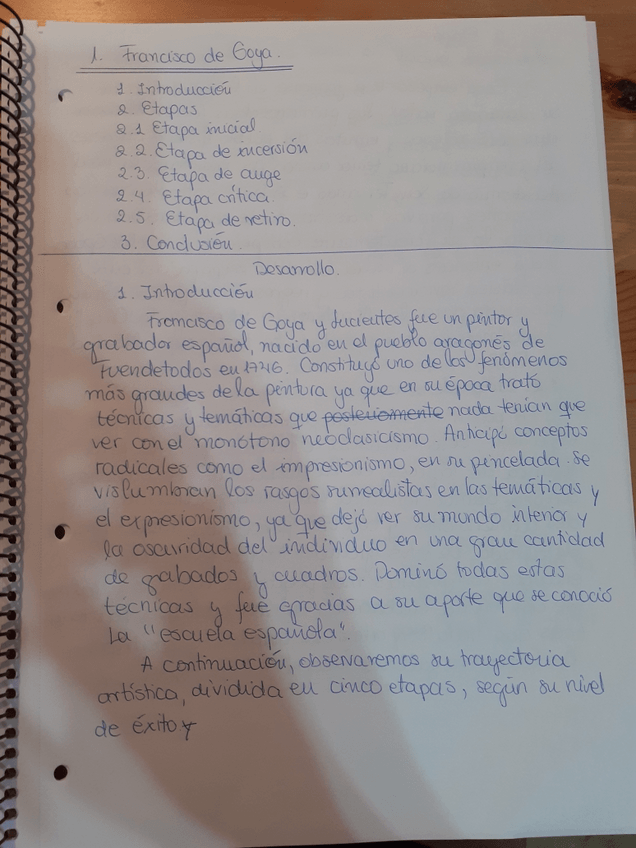 1. Francisco de Goya.
1. Introducción
2. Etapas
2.1 Etapa inicial
2.2. Etapa de incersión
2.3. Etapa de auge
2.4. Etapa crítica.
2.5. Etapa de retiro.
3. Conclusión.
Desarrollo.
1. Introducción
Francisco de Goya y Lucientes fue un pintor y
grabador español, nacido en el pueblo aragonés de
Fuendetodos en 1746. Constituyó uno de los fenómenos
más grandes de la pintura ya que en su época trató
técnicas y temáticas que posteriomente nada tenían que
ver con el monótono neoclasicismo. Anticipó conceptos
radicales como el impresionismo, en su pincelada se
vislumbran los rasgos surrealistas en las temáticas y
el expresionismo, ya que dejó ver su mundo interior y
la oscuridad del individuo en una gran cantidad
de grabados y cuadros. Dominó todas estas
técnicas y fue gracias a su aporte que se conoció
la "escuela española".
A continuación, observaremos su trayectoria
artística, dividida en cinco etapas, según su nivel
de éxito y